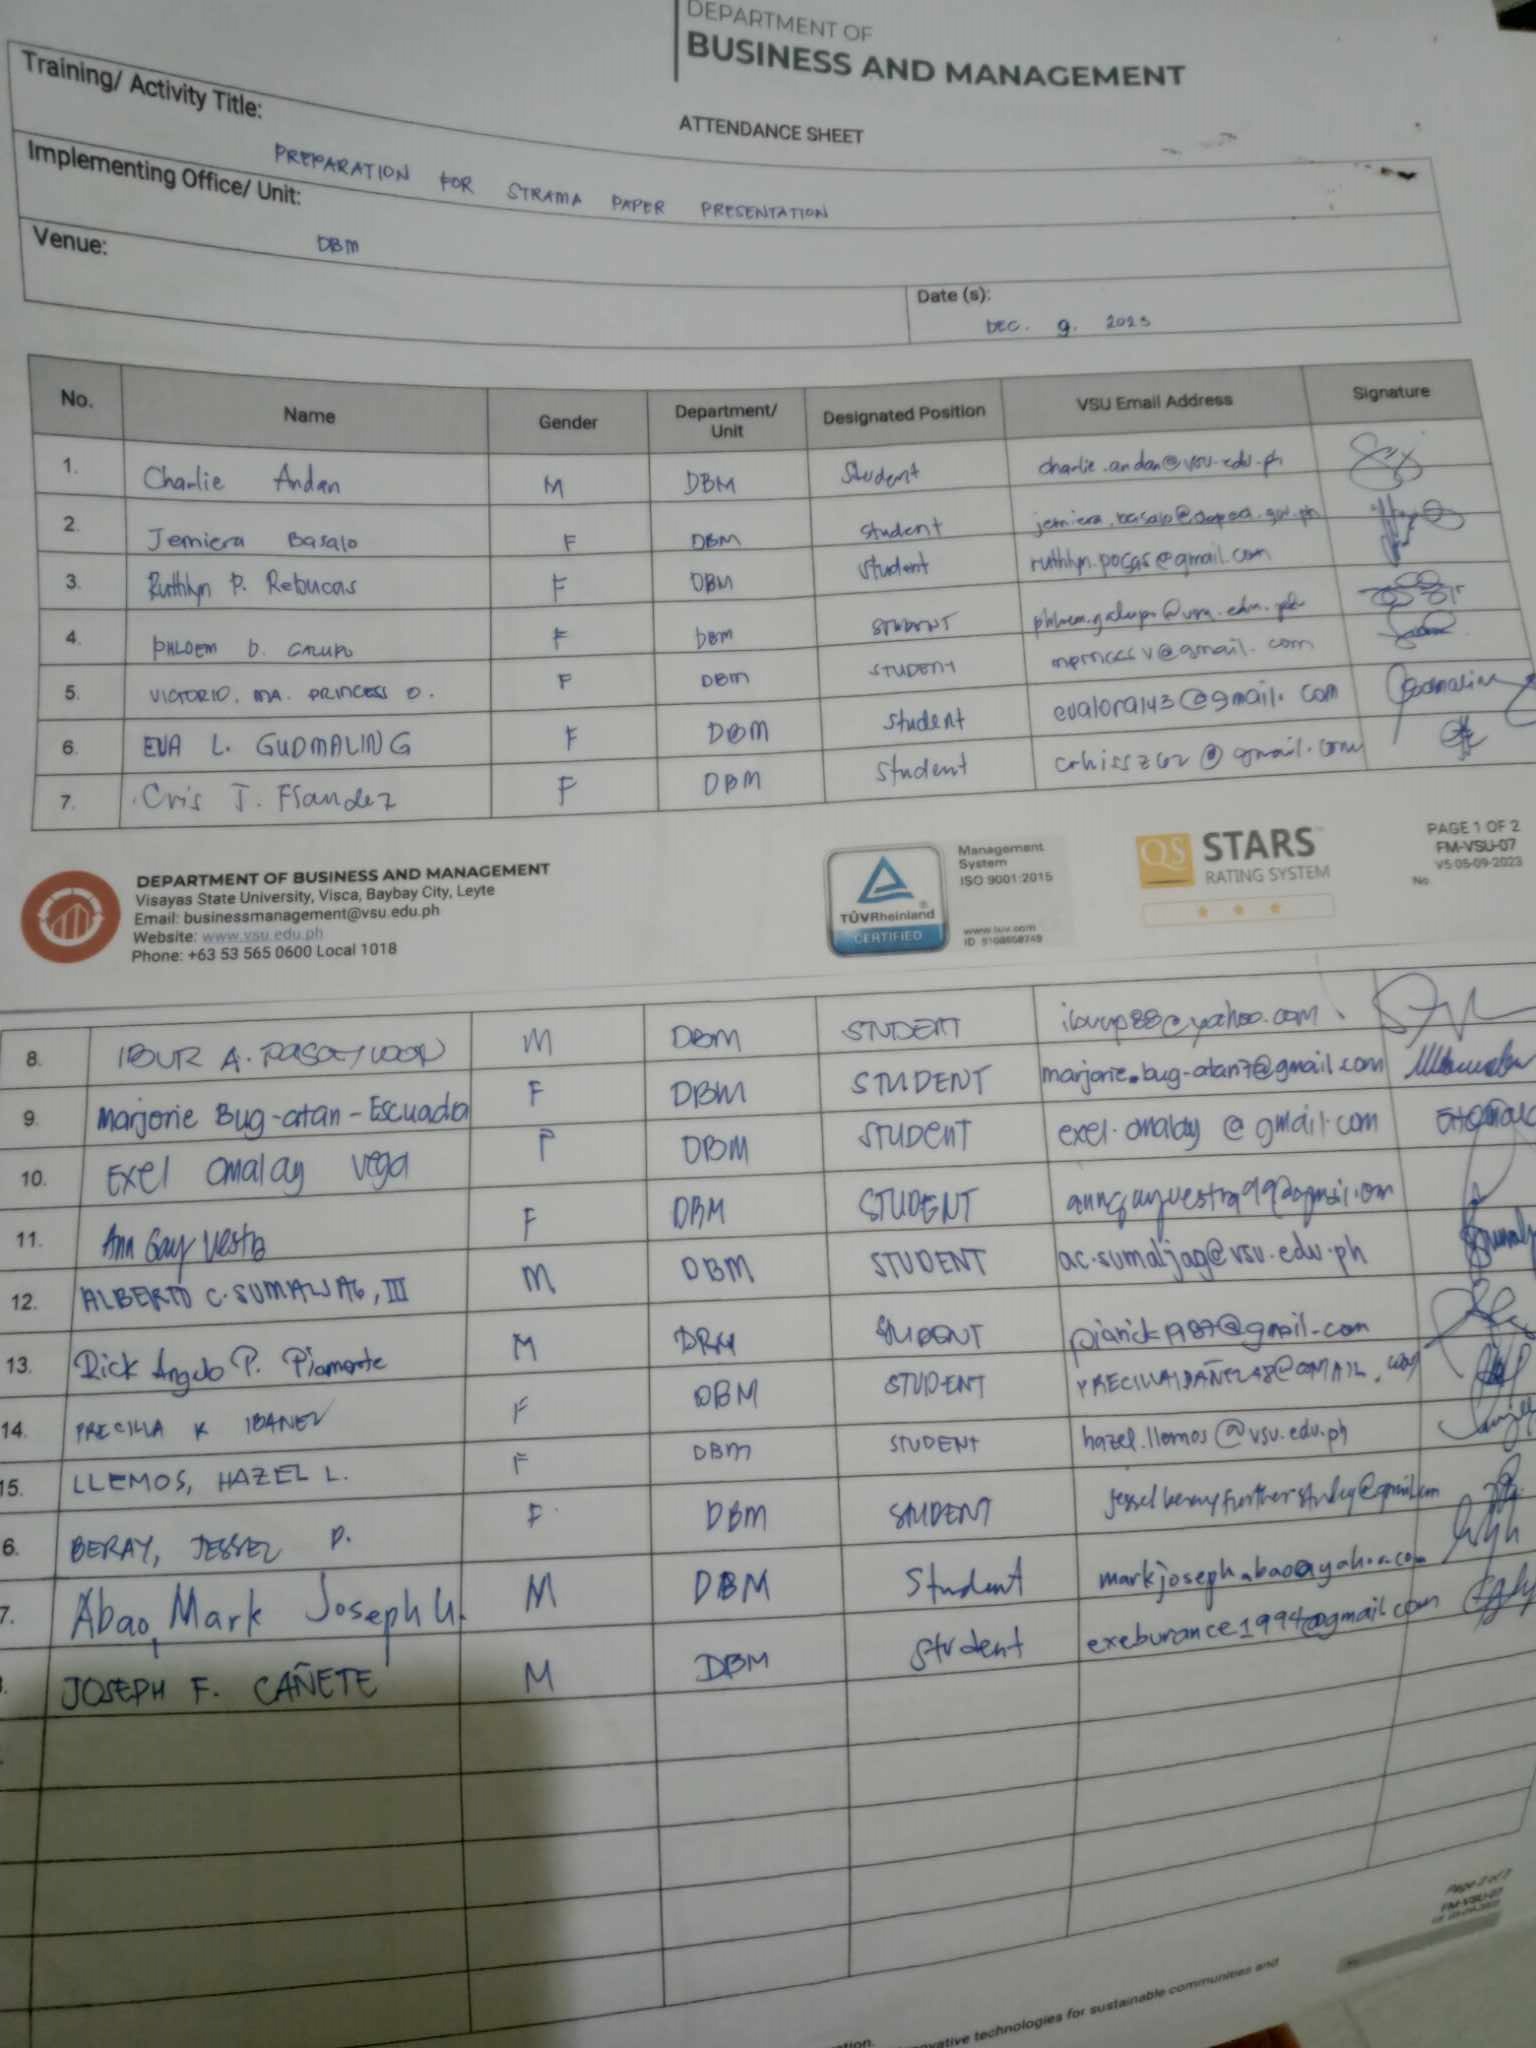 DEPARTMENT OF
BUSINESS AND MANAGEMENT
ATTENDANCE SHEET
Training/ Activity Title:
PREPARATION FOR STRAMA PAPER PRESENTATION
Implementing Office/ Unit:
DBM
Venue:
Date (s):
DEC. 9. 2023
No. Name Gender Department/ Unit Designated Position VSU Email Address Signature
1. Charlie Andan M DBM Student charlie.andan@vsu.edu.ph
2. Jemiera Basalo F DBM Student
3. Ruthlyn P. Rebucas F DBM Student ruthlyn.pocas@gmail.com
4. PHLOEM D. GALUPO F DBM STUDENT phloem.galupo@vsu.edu.ph
5. VICTORIO, MA. PRINCESS O. F DBM STUDENT
6. EVA L. GUDMALING F DBM Student evalora143@gmail.com
7. Cris J. Flandez F DBM Student
DEPARTMENT OF BUSINESS AND MANAGEMENT
Visayas State University, Visca, Baybay City, Leyte
Email: businessmanagement@vsu.edu.ph
Website: www.vsu.edu.ph
Phone: +63 53 565 0600 Local 1018
TÜVRheinland
CERTIFIED
Management
System
ISO 9001:2015
www.tuv.com
ID 9108658749
QS STARS
RATING SYSTEM
PAGE 1 OF 2
FM-VSU-07
V5 05-09-2023
No.
8. IBUR A. M DBM STUDENT
9. Marjorie Bug-atan-Escuadra F DBM STUDENT marjorie.bug-atan7@gmail.com
10. Exel Omalay Vega F DBM STUDENT exel.omalay@gmail.com
11. Ann Gay Vestra F DBM STUDENT
12. ALBERTO C. SUMALJAG, III M DBM STUDENT ac.sumaljag@vsu.edu.ph
13. Rick Angelo P. Piamonte M DBM STUDENT piarick1987@gmail.com
14. PRECILLA K IBAÑEZ F DBM STUDENT
15. LLEMOS, HAZEL L. F DBM STUDENT hazel.llemos@vsu.edu.ph
6. BERAY, JESSEL P. F DBM STUDENT jesselberayfurtherstudy@gmail.com
7. Abao, Mark Joseph U. M DBM Student markjoseph.abao@yahoo.com
JOSEPH F. CAÑETE M DBM Student exeburance1994@gmail.com
Page 2 of 2
FM-VSU-07
innovative technologies for sustainable communities and